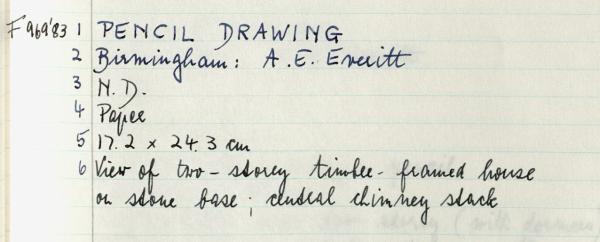 F969'83 1 PENCIL DRAWING
2 Birmingham: A.E. Everitt
3 N.D.
4 Paper
5 17.2 x 24.3 cm
6 View of two-storey timber-framed house
on stone base; central chimney stack